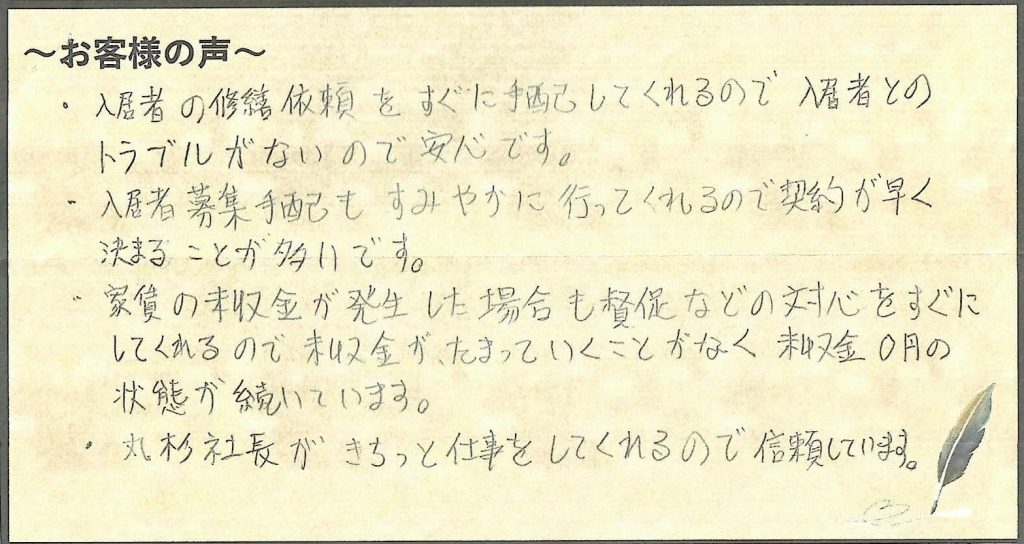 ～お客様の声～
・入居者の修繕依頼をすぐに手配してくれるので入居者との
トラブルがないので安心です。
・入居者募集手配もすみやかに行ってくれるので契約が早く
決まることが多いです。
・家賃の未収金が発生した場合も督促などの対応をすぐに
してくれるので未収金が、たまっていくことがなく未収金0円の
状態が続いています。
・丸杉社長がきちっと仕事をしてくれるので信頼しています。